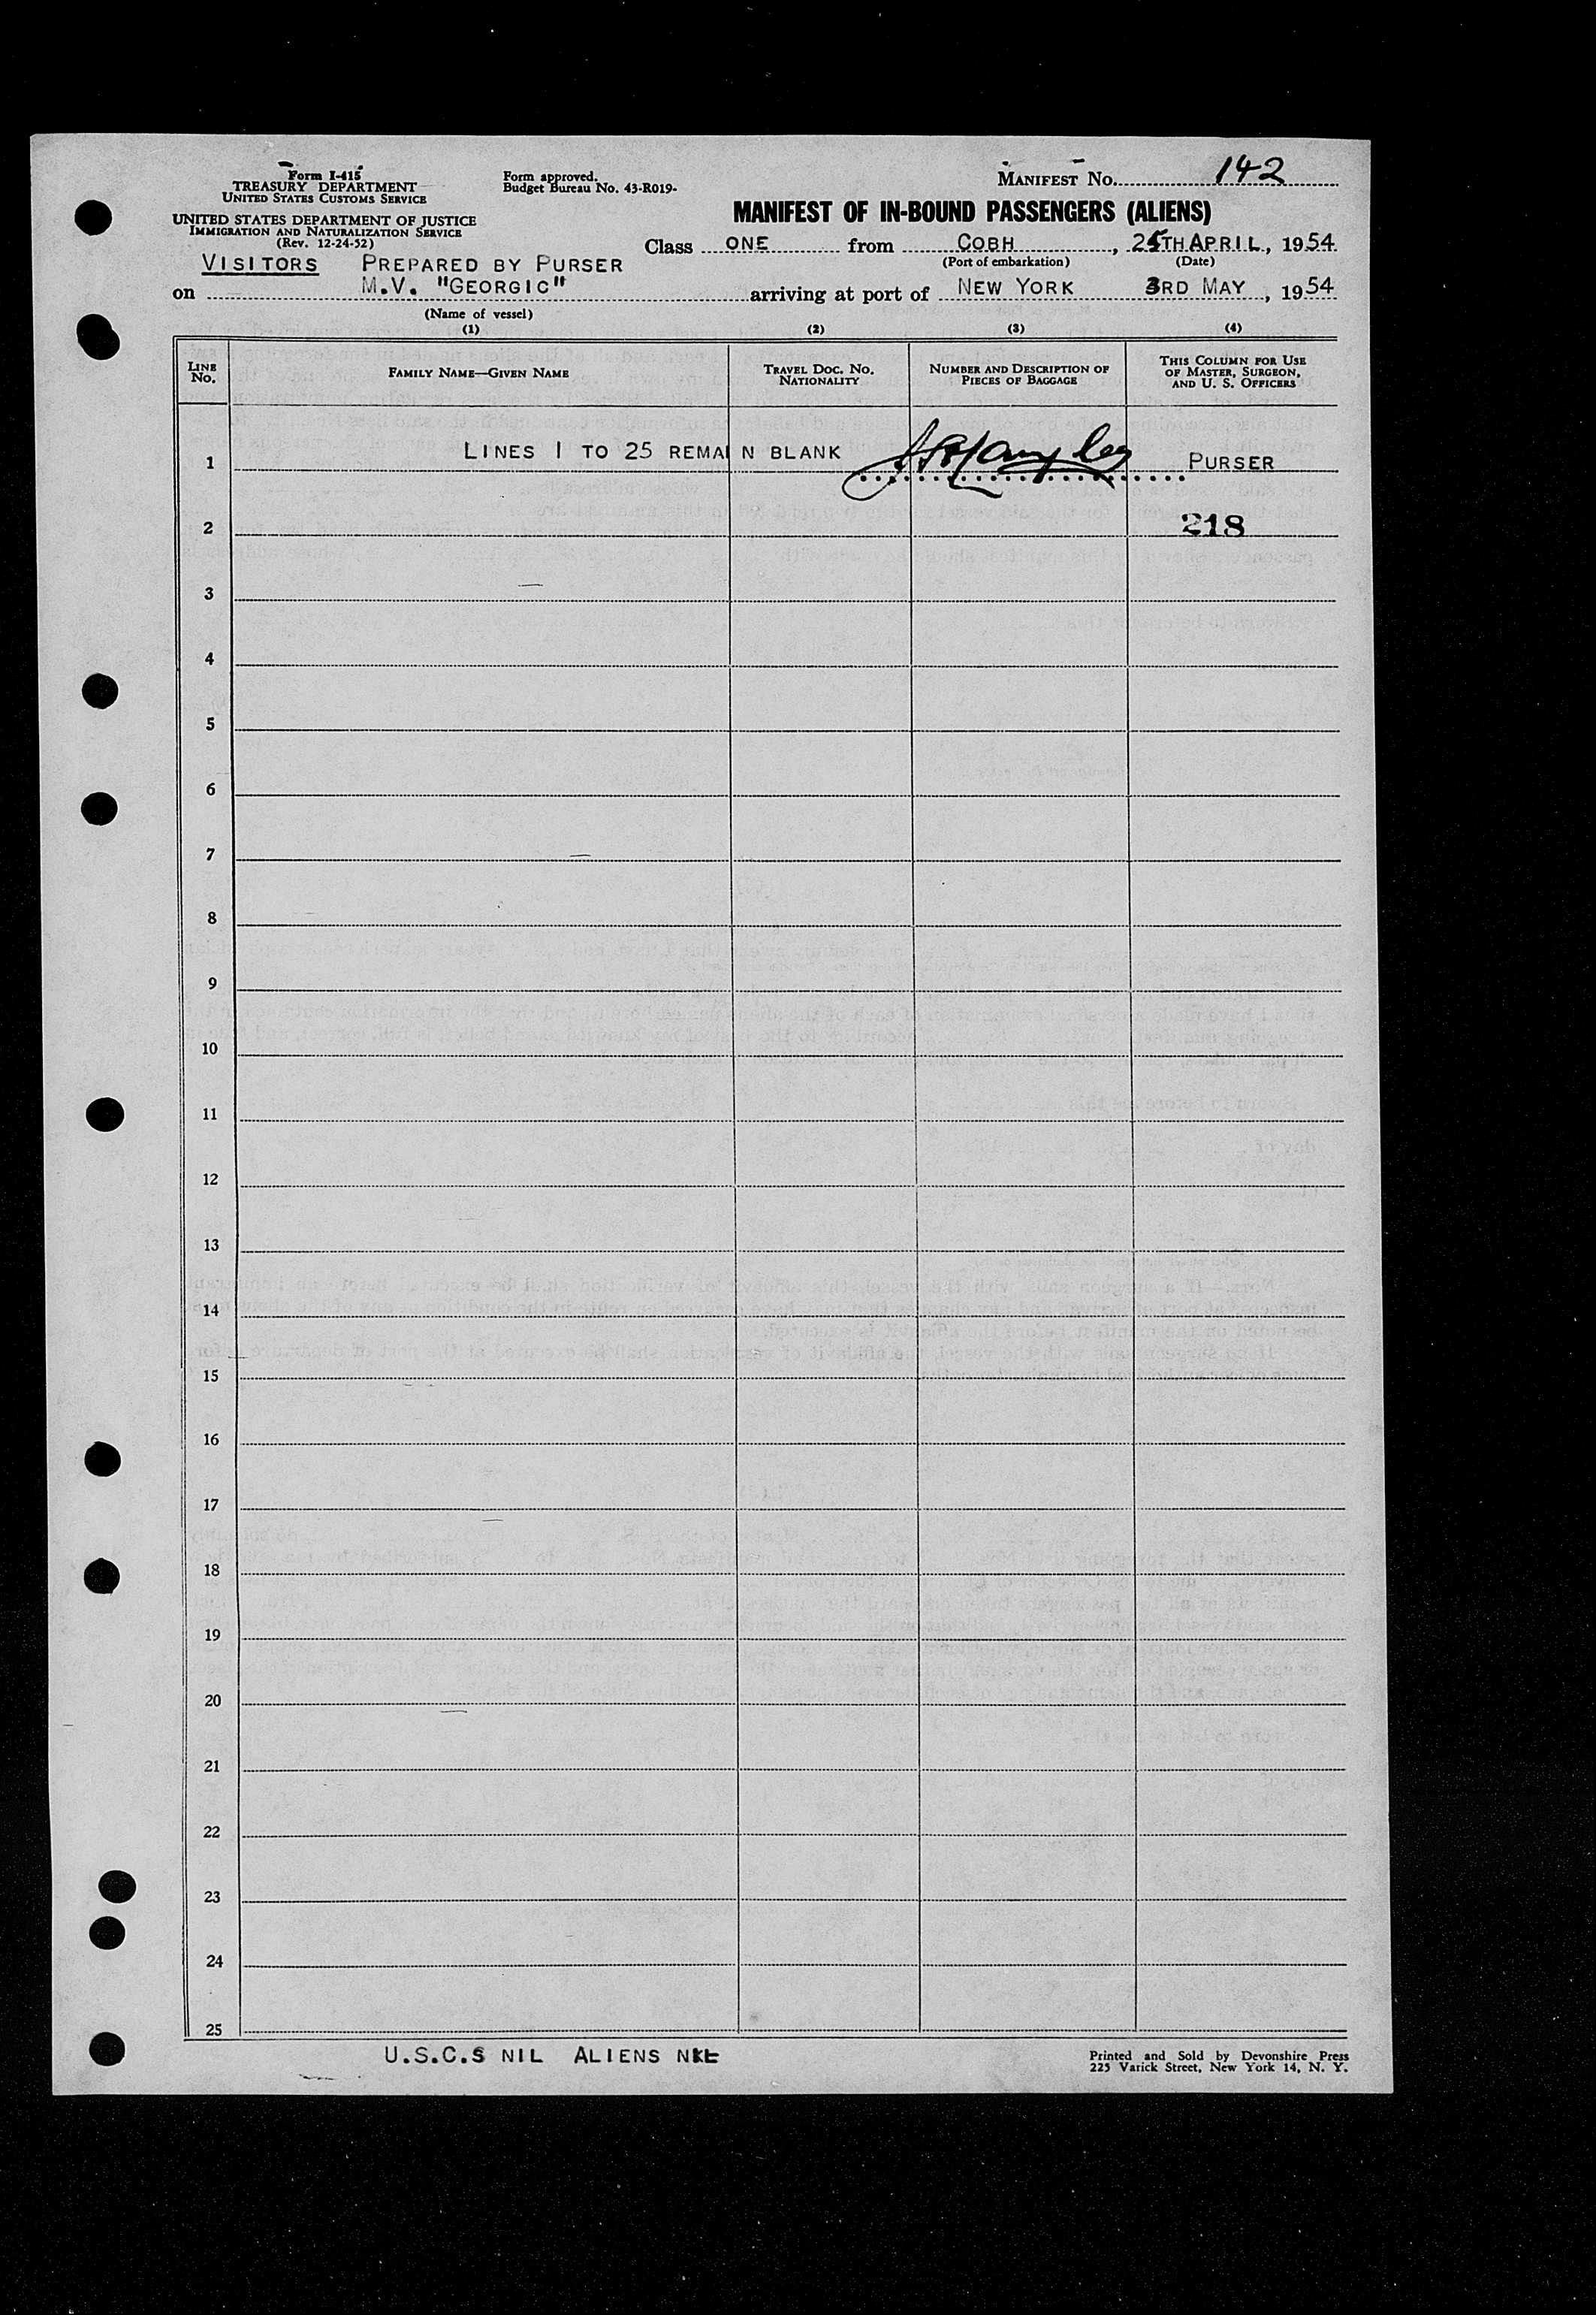 Form I-415
TREASURY DEPARTMENT
UNITED STATES CUSTOMS SERVICE
UNITED STATES DEPARTMENT OF JUSTICE
IMMIGRATION AND NATURALIZATION SERVICE
(Rev. 12-24-52)
Form approved.
Budget Bureau No. 43-R019-
MANIFEST NO. 142
MANIFEST OF IN-BOUND PASSENGERS (ALIENS)
Class ONE from COBH, 25TH APRIL, 1954
(Port of embarkation) (Date)
VISITORS PREPARED BY PURSER
on M.V. "GEORGIC" arriving at port of NEW YORK 3RD MAY, 1954
(Name of vessel)
(1) (2) (3) (4)
LINE NO. FAMILY NAME—GIVEN NAME TRAVEL DOC. NO. NATIONALITY NUMBER AND DESCRIPTION OF PIECES OF BAGGAGE THIS COLUMN FOR USE OF MASTER, SURGEON, AND U. S. OFFICERS
1 LINES 1 TO 25 REMAIN BLANK PURSER
2 218
3
4
5
6
7
8
9
10
11
12
13
14
15
16
17
18
19
20
21
22
23
24
25
U.S.C.S NIL ALIENS NIL
Printed and Sold by Devonshire Press
225 Varick Street, New York 14, N. Y.